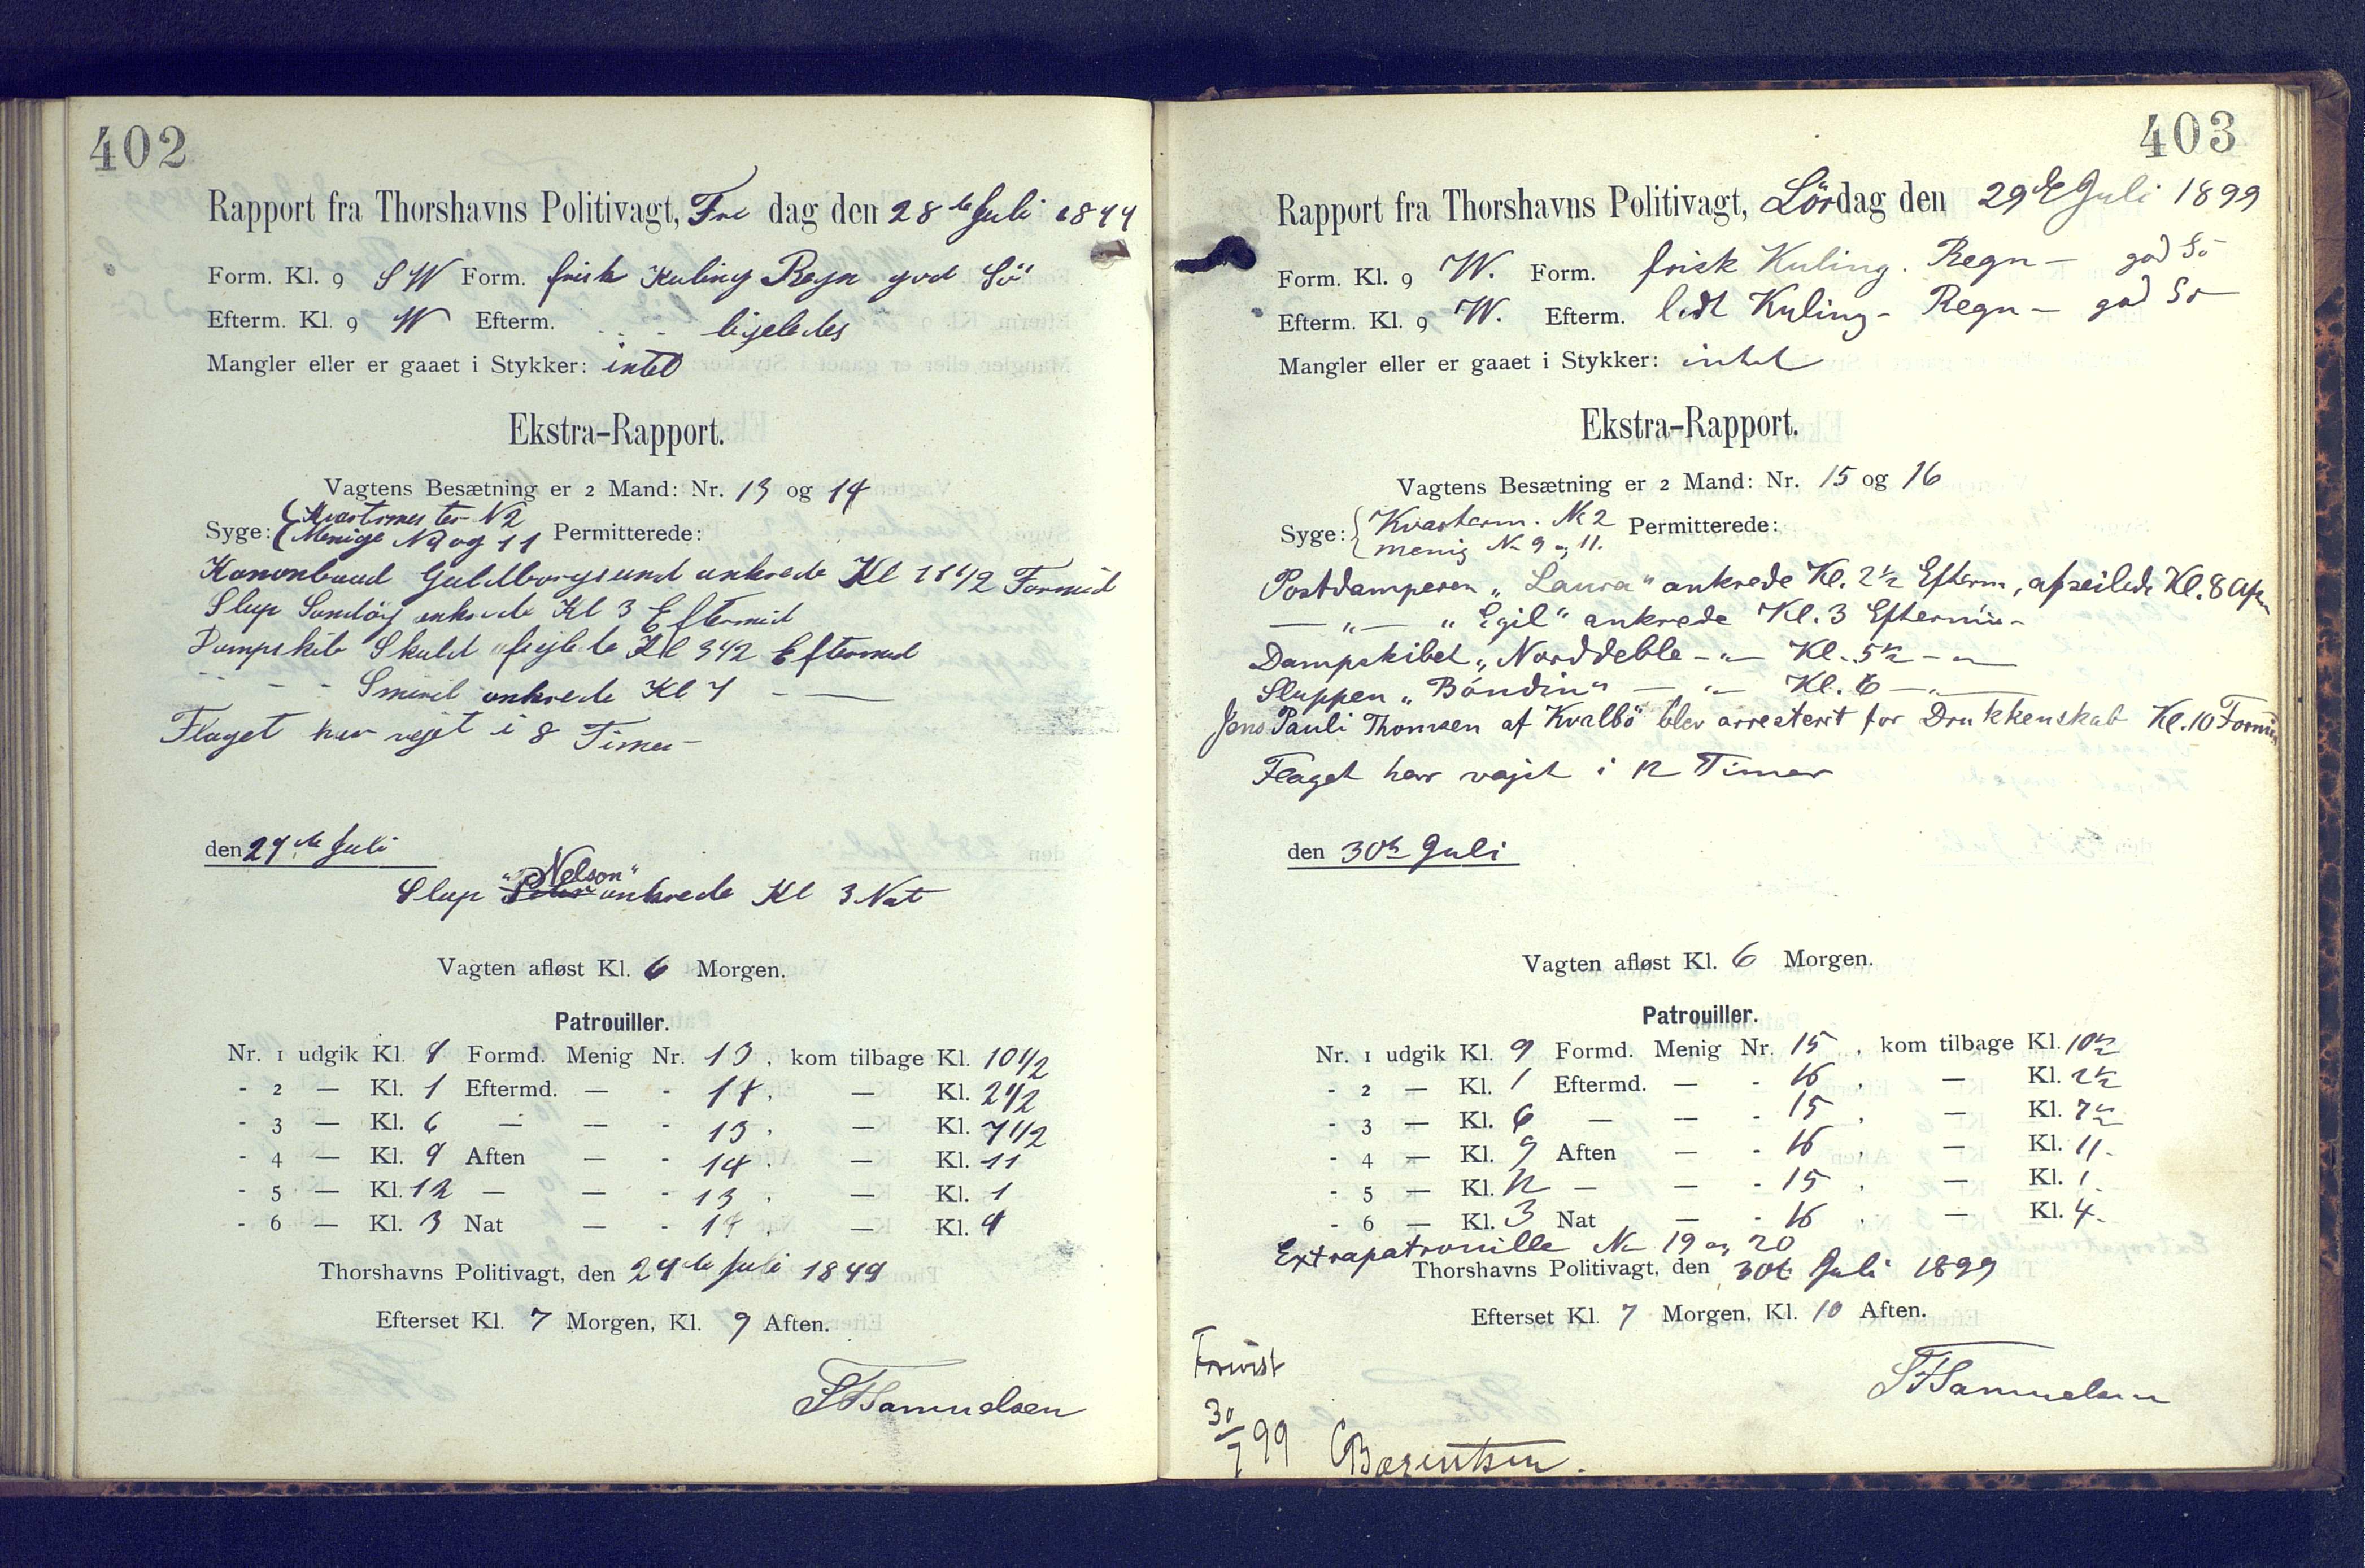 402
Rapport fra Thorshavns Politivagt, Fre dag den 28de Juli 1899
Form. Kl. 9 SW Form. frisk Kuling Regn god Sö
Efterm. Kl. 9 W Efterm. ligeledes
Mangler eller er gaaet i Stykker: intet
Ekstra-Rapport.
Vagtens Besætning er 2 Mand: Nr. 13 og 14
Syge: Kvartermester N 2 Menige N 9 og 11 Permitterede:
Kanonbaad Guldborgsund ankrede Kl 11 1/2 Formid
Slup Sandöy ankrede Kl 3 Eftermid
Dampskib Skuld afsejlede Kl 3 1/2 Eftermid
- - - Smiril ankrede Kl 7 - —
Flaget har vejet i 8 Timer
den 29de Juli
Slup "Nelson" ankrede Kl 3 Nat
Vagten afløst Kl. 6 Morgen.
Patrouiller.
Nr. 1 udgik Kl. 9 Formd. Menig Nr. 13, kom tilbage Kl. 10 1/2
- 2 — Kl. 1 Eftermd. — - 14, — Kl. 2 1/2
- 3 — Kl. 6 — — - 13, — Kl. 7 1/2
- 4 — Kl. 9 Aften — - 14, — Kl. 11
- 5 — Kl. 12 — — - 13, — Kl. 1
- 6 — Kl. 3 Nat — - 14, — Kl. 4
Thorshavns Politivagt, den 29de Juli 1899
Efterset Kl. 7 Morgen, Kl. 9 Aften.
Samuelsen
403
Rapport fra Thorshavns Politivagt, Lördag den 29de Juli 1899
Form. Kl. 9 W. Form. frisk Kuling. Regn — god Sö
Efterm. Kl. 9 W. Efterm. lidt Kuling - Regn — god Sö
Mangler eller er gaaet i Stykker: intet
Ekstra-Rapport.
Vagtens Besætning er 2 Mand: Nr. 15 og 16
Syge: Kvarterm. N 2 menig N 9 og 11. Permitterede:
Postdamperen "Laura" ankrede Kl. 2 1/2 Efterm, afseilede Kl. 8 Aften
— " — "Egil" ankrede Kl. 3 Eftermid-
Dampskibet "Norddeble - " — Kl. 5 1/2 - " —
Sluppen "Bóndin" — " — Kl. 6 — " —
Jens Pauli Thomsen af Kvalbö blev arresterit for Drukkenskab Kl. 10 Formid
Flaget har vajet i 12 Timer
den 30te Juli
Vagten afløst Kl. 6 Morgen.
Patrouiller.
Nr. 1 udgik Kl. 9 Formd. Menig Nr. 15, kom tilbage Kl. 10 1/2
- 2 — Kl. 1 Eftermd. — - 16, — Kl. 2 1/2
- 3 — Kl. 6 — — - 15, — Kl. 7 1/2
- 4 — Kl. 9 Aften — - 16, — Kl. 11.
- 5 — Kl. 12 — — - 15, — Kl. 1.
- 6 — Kl. 3 Nat — - 16, — Kl. 4.
Extrapatrouille N 19 og 20
Thorshavns Politivagt, den 30te Juli 1899
Efterset Kl. 7 Morgen, Kl. 10 Aften.
Samuelsen
Forevist
30/7 99 CBærentsen.